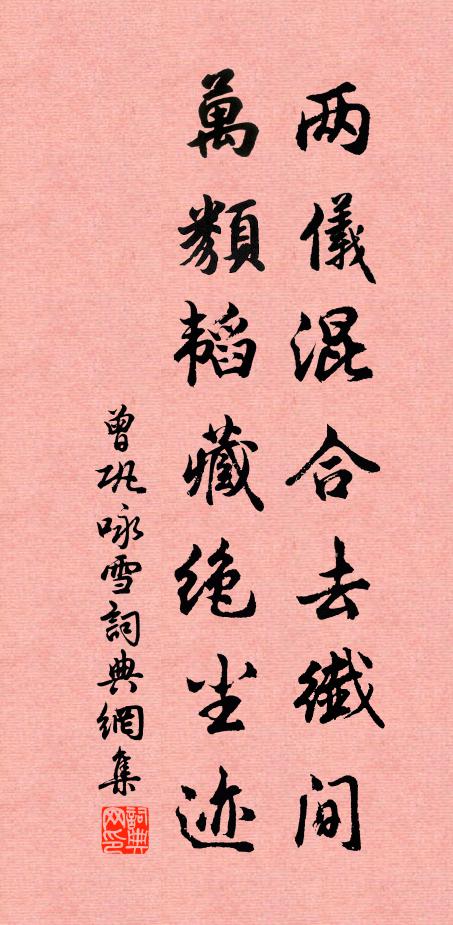 两儀混合去纖间
萬類韬藏绝尘迹
曾巩咏雪詞典網集
詞典网印